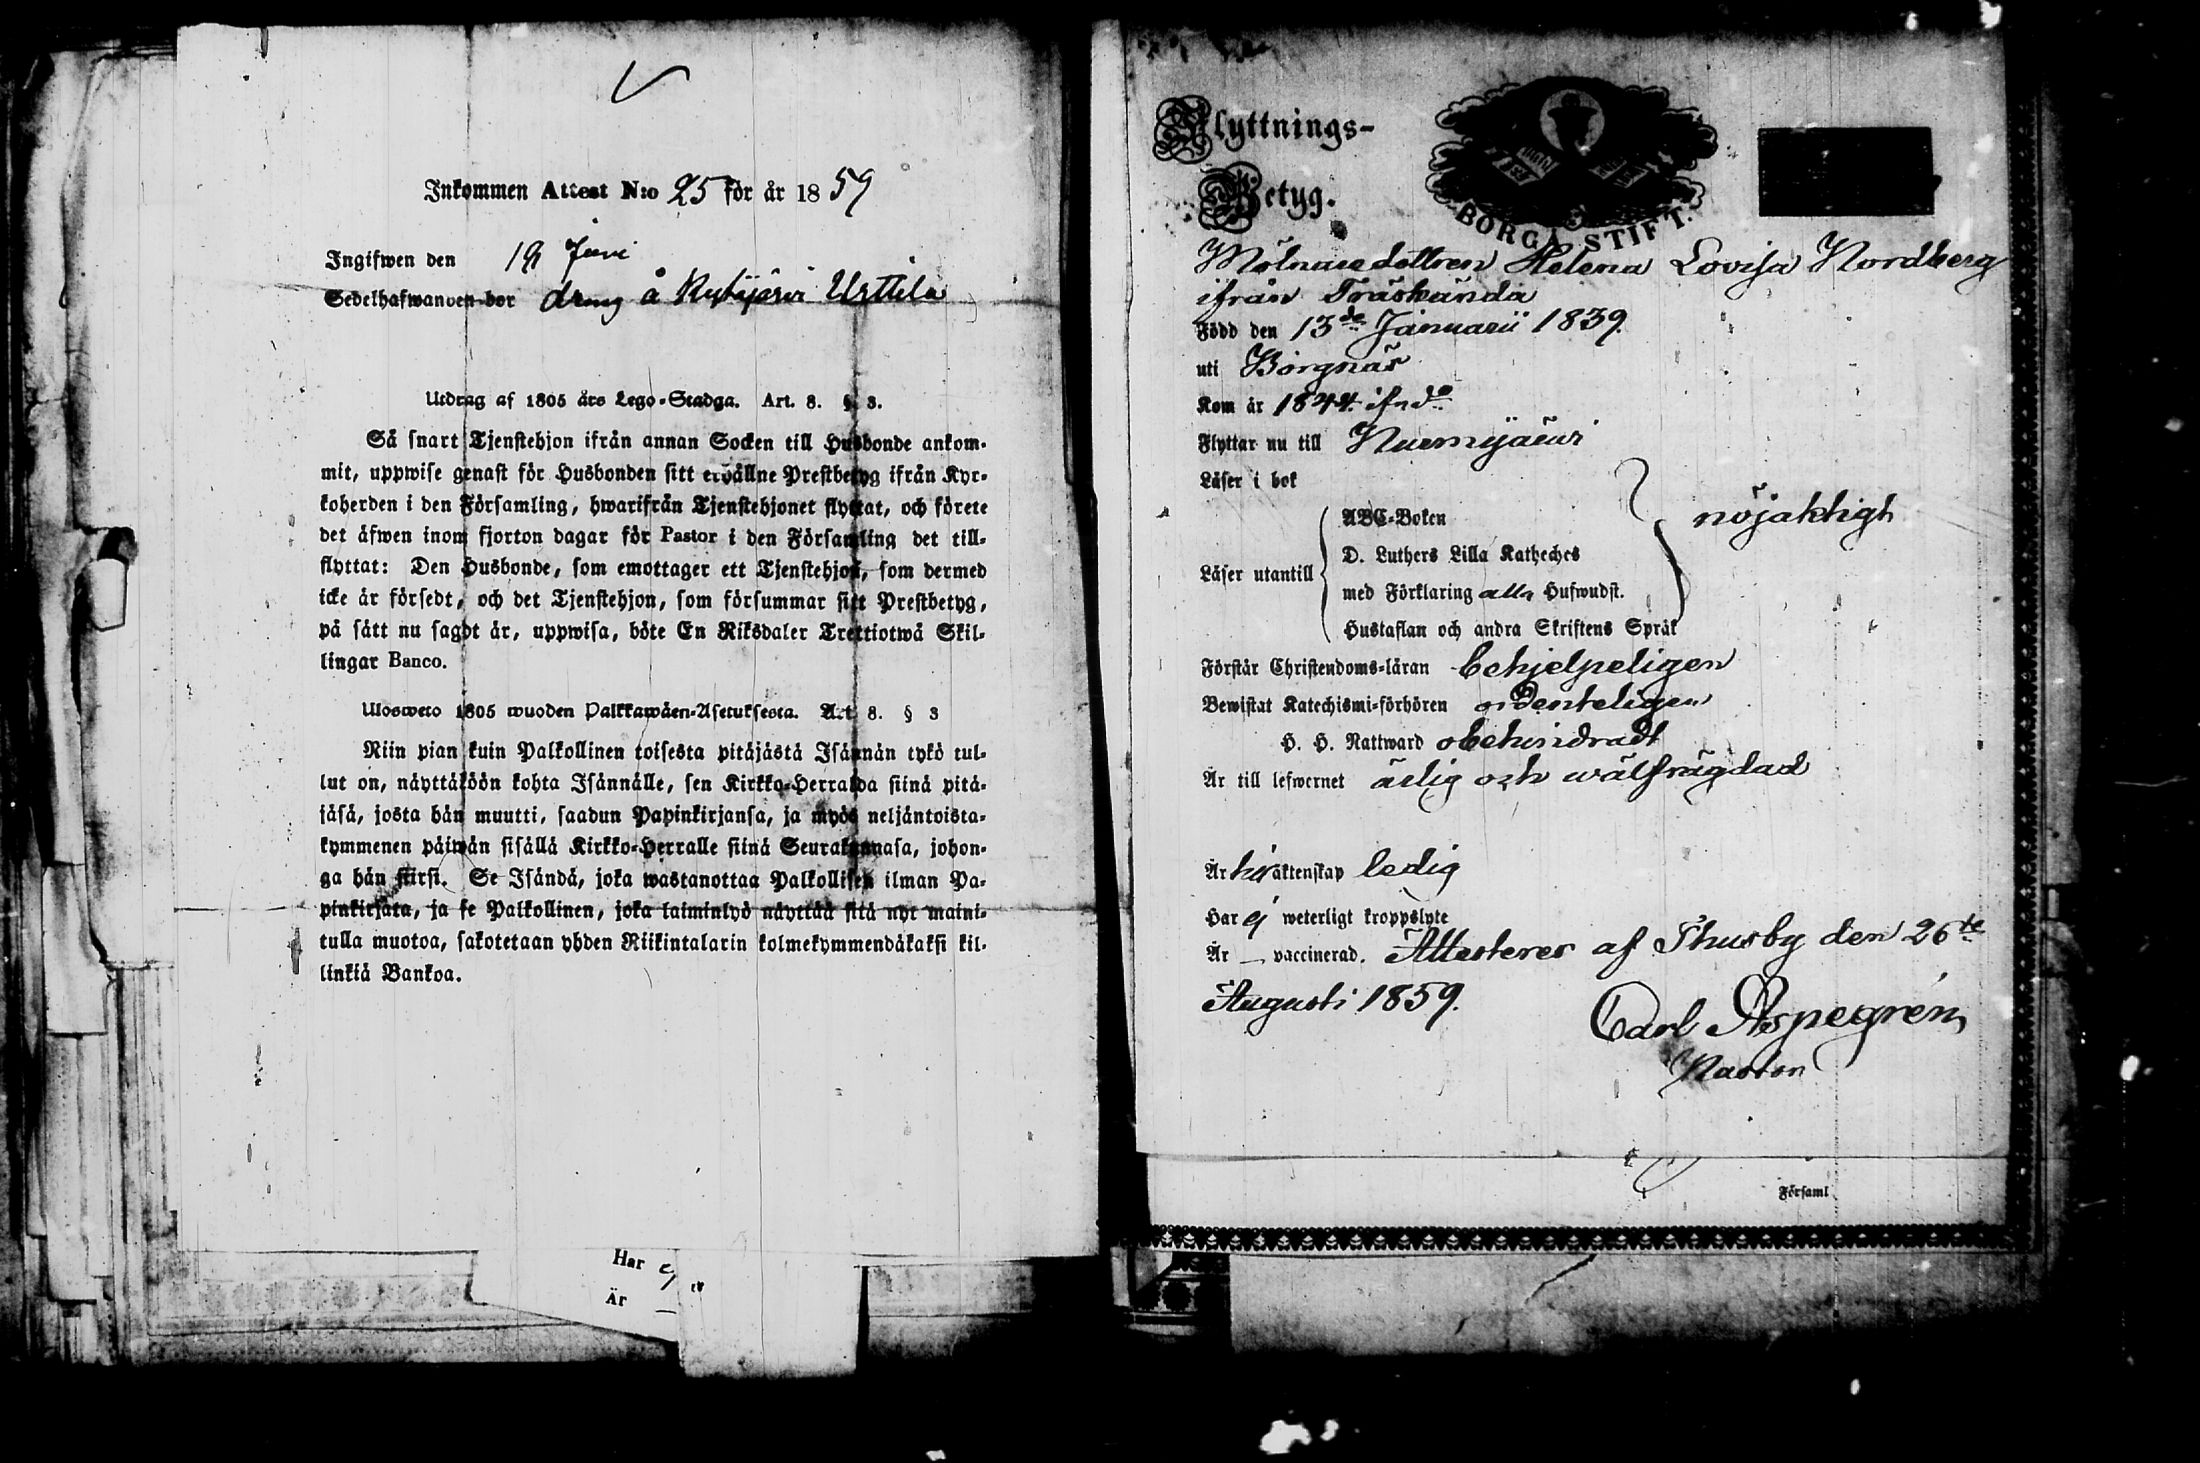 Inkommen Attest N:o 25 för år 1859
Ingifwen den 19 Juni
Sedelhafwanden bor dräng å Urttila
Utdrag af 1805 års Lego-Stadga. Art. 8. § 3.
Så snart Tjenstehjon ifrån annan Socken till Husbonde ankom-
mit, uppwise genast för Husbonden sitt erhållne Prestbetyg ifrån Kyr-
koherden i den Församling, hwarifrån Tjenstehjonet flyttat, och förete
det äfwen inom fjorton dagar för Pastor i den Församling det till-
flyttat: Den Husbonde, som emottager ett Tjenstehjon, som dermed
icke är försedt, och det Tjenstehjon, som försummar sitt Prestbetyg,
på sätt nu sagdt är, uppwisa, böte En Riksdaler Trettiotwå Skil-
lingar Banco.
Ulosweto 1805 wuoden Palkkawäen-Asetuksesta. Art. 8. § 3
Niin pian kuin Palkollinen toisesta pitäjästä Isännän tykö tul-
lut on, näyttäköön kohta Isännälle, sen Kirkko-Herralda siinä pitä-
jäsä, josta hän muutti, saadun Papinkirjansa, ja myös neljäntoista-
kymmenen päiwän sisällä Kirkko-Herralle siinä Seurakunnasa, johon-
ga hän siirsi. Se Isändä, joka wastanottaa Palkollisen ilman Pa-
pinkirjata, ja se Palkollinen, joka laiminlyö näyttää sitä nyt maini-
tulla muotoa, sakotetaan yhden Riikintalarin kolmekymmendäkaksi kil-
linkiä Bankoa.
Har ej
Är
Flyttnings-
Betyg.
BORGÅ STIFT.
Mölnaredottren Helena Lovisa Nordberg
ifrån Träskända
Född den 13de Januarii 1839.
uti Borgnäs
Kom år 1844 ifn do
Flyttar nu till Nurmijärvi
Läser i bok
Läser utantill
ABC-Boken
D. Luthers Lilla Katheches
med Förklaring alla Hufwudst.
Hustaflan och andra Skriftens Språk
nöjaktigt
Förstår Christendoms-läran behjelpeligen
Bewistat Katechismi-förhören ordenteligen
H. H. Nattward obehindradt
Är till lefwernet ärlig och wälfrägdad
Är för äktenskap ledig
Har ej weterligt kroppslyte
Är — vaccinerad. Attesteres af Thusby den 26te
Augusti 1859.
Carl Aspegrén
Pastor
Församl